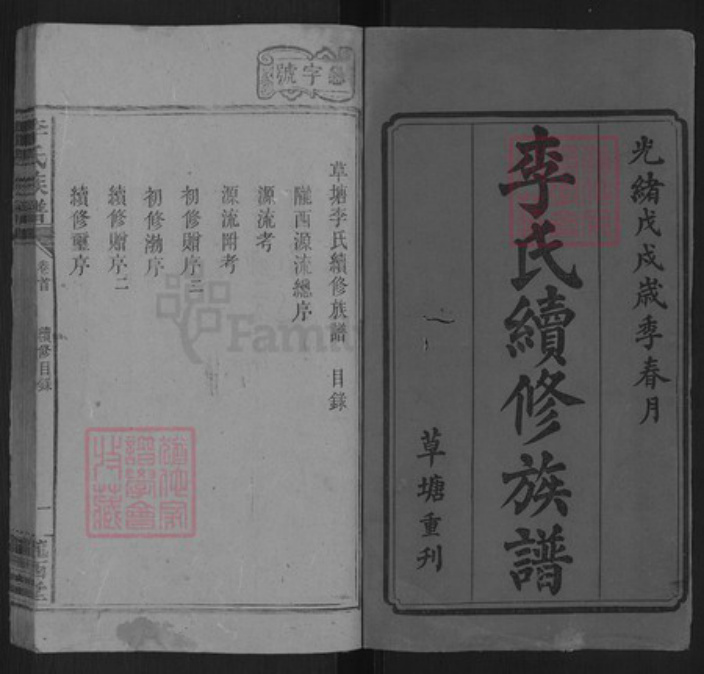 光緒戊戌歲季春月
李氏續修族譜
草塘重刊
字號
草塘李氏續修族譜 目錄
隴西源流總序
源流考
源流附考
初修贈序三
初修渤序
續修贈序二
續修璽序
李氏族譜
卷首
續修目錄
一
隴西堂